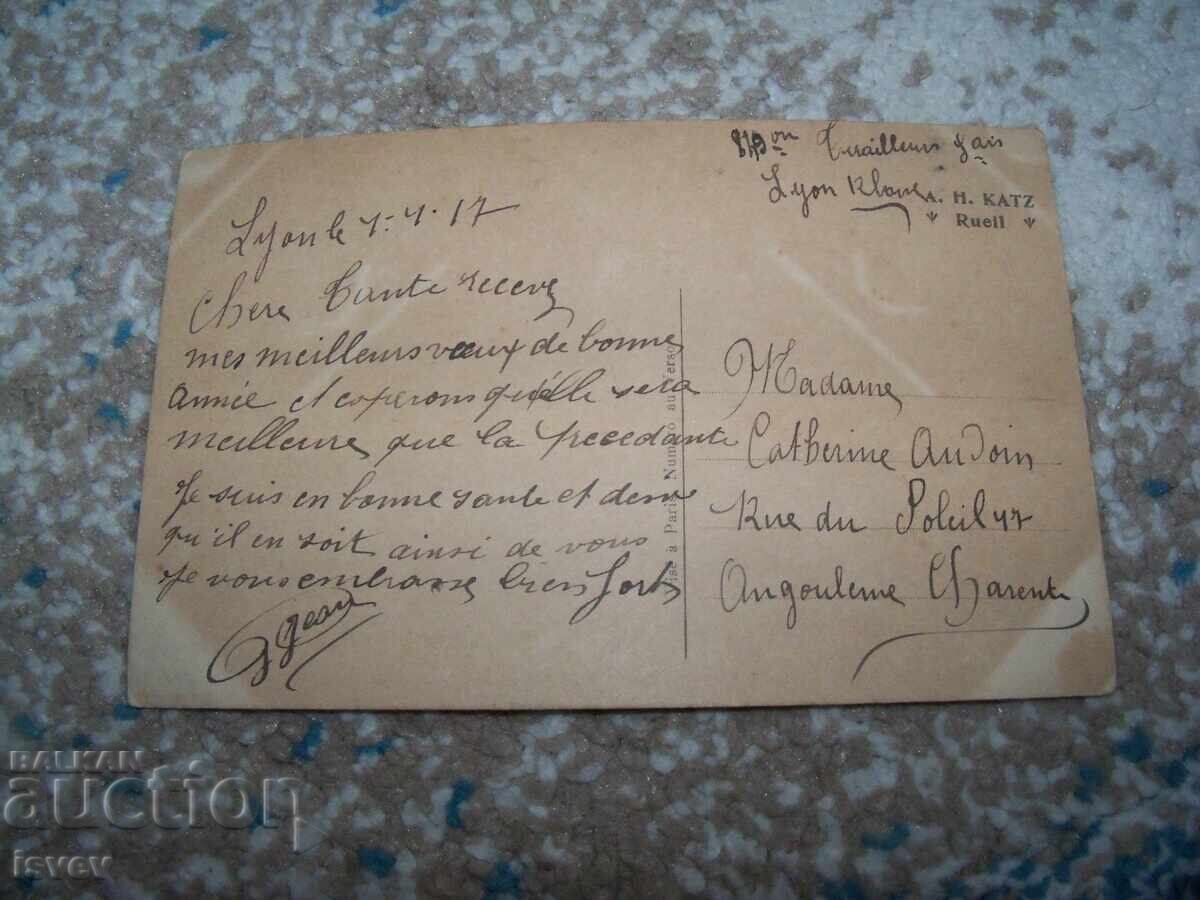 on Tirailleurs
Lyon
A. H. KATZ
Rueil
Lyon le 1-1-17
Chere Tante recevez
mes meilleurs vœux de bonne
année et esperons qu'elle sera
meilleure que la precedante
Je suis en bonne sante et
qu'il en soit ainsi de vous
Je vous embrasse bien fort
Jean
Visé à Paris. Numéro au verso
Madame
Catherine Audoin
Rue du Soleil 47
Angouleme Charente
BALKAN
auction
isvev